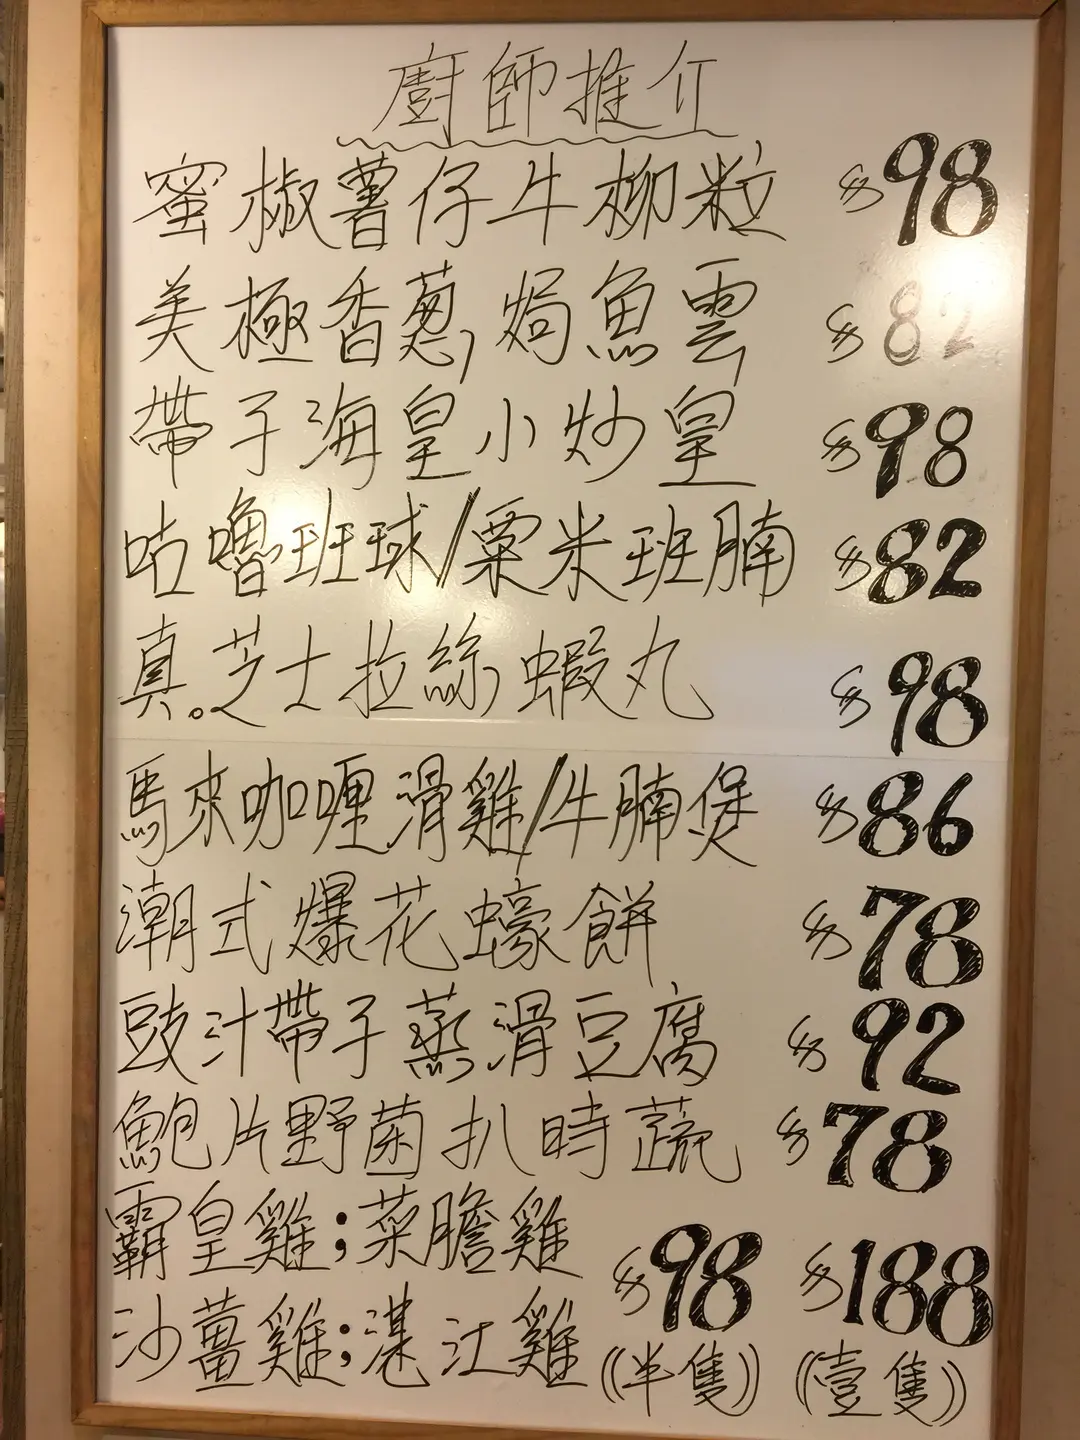 廚師推介
蜜椒薯仔牛柳粒 $98
美極香蔥焗魚雲 $82
帶子海皇小炒皇 $98
咕嚕班球/粟米班腩 $82
真芝士拉絲蝦丸 $98
馬來咖喱滑雞/牛腩煲 $86
潮式爆花蠔餅 $78
豉汁帶子蒸滑豆腐 $92
鮑片野菌扒時蔬 $78
霸皇雞;菜膽雞
沙薑雞;湛江雞 $98 $188
(半隻) (壹隻)